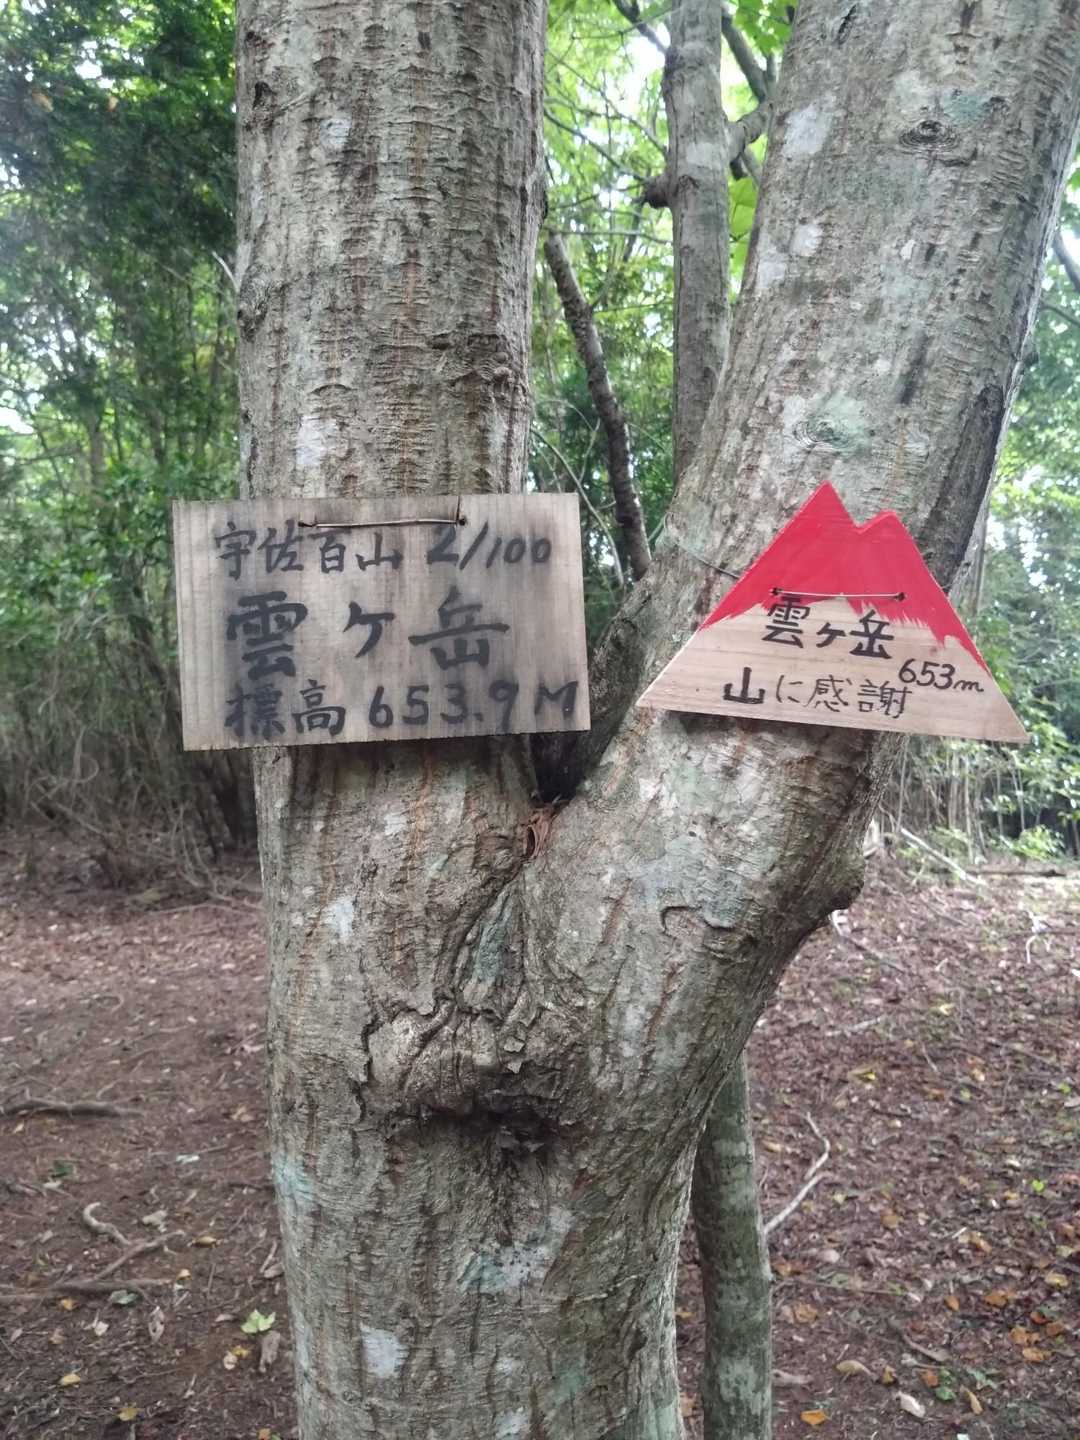 宇佐百山 2/100
雲ヶ岳
標高 653.9M
雲ヶ岳
653m
山に感謝